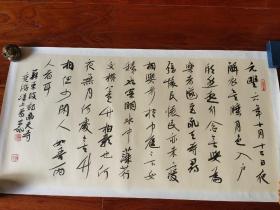 元豐六年十月十二日夜
解衣欲睡月色入户
欣然起行念無與為
樂者遂至承天寺尋
張懷民懷民亦未寢
相與步於中庭庭下如
積水空明水中藻荇
交橫蓋竹柏影也何
夜無月何處無竹
柏但少閑人如吾兩
人者耳
蘇東坡記承天寺
夜游